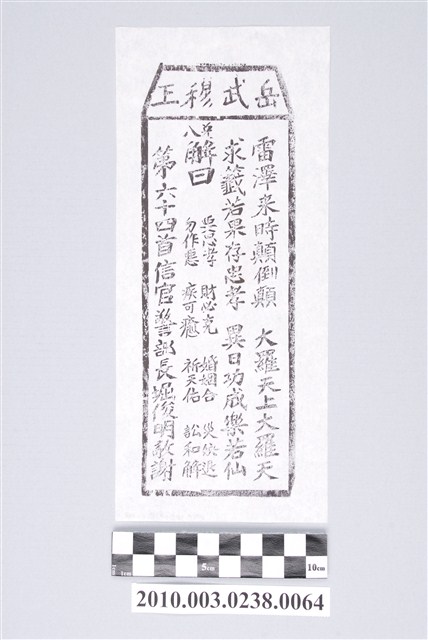 岳武穆王
雷澤來時顛倒顛　大羅天上大羅天
求籤若果存忠孝　異日功成樂若仙
解曰
忠孝　財必充　婚姻合　災
勿作悲　疾可癒　祈天佑　訟和解
第六十四首信官警部長堀俊明敬謝
1cm
5cm
10cm
2010.003.0238.0064